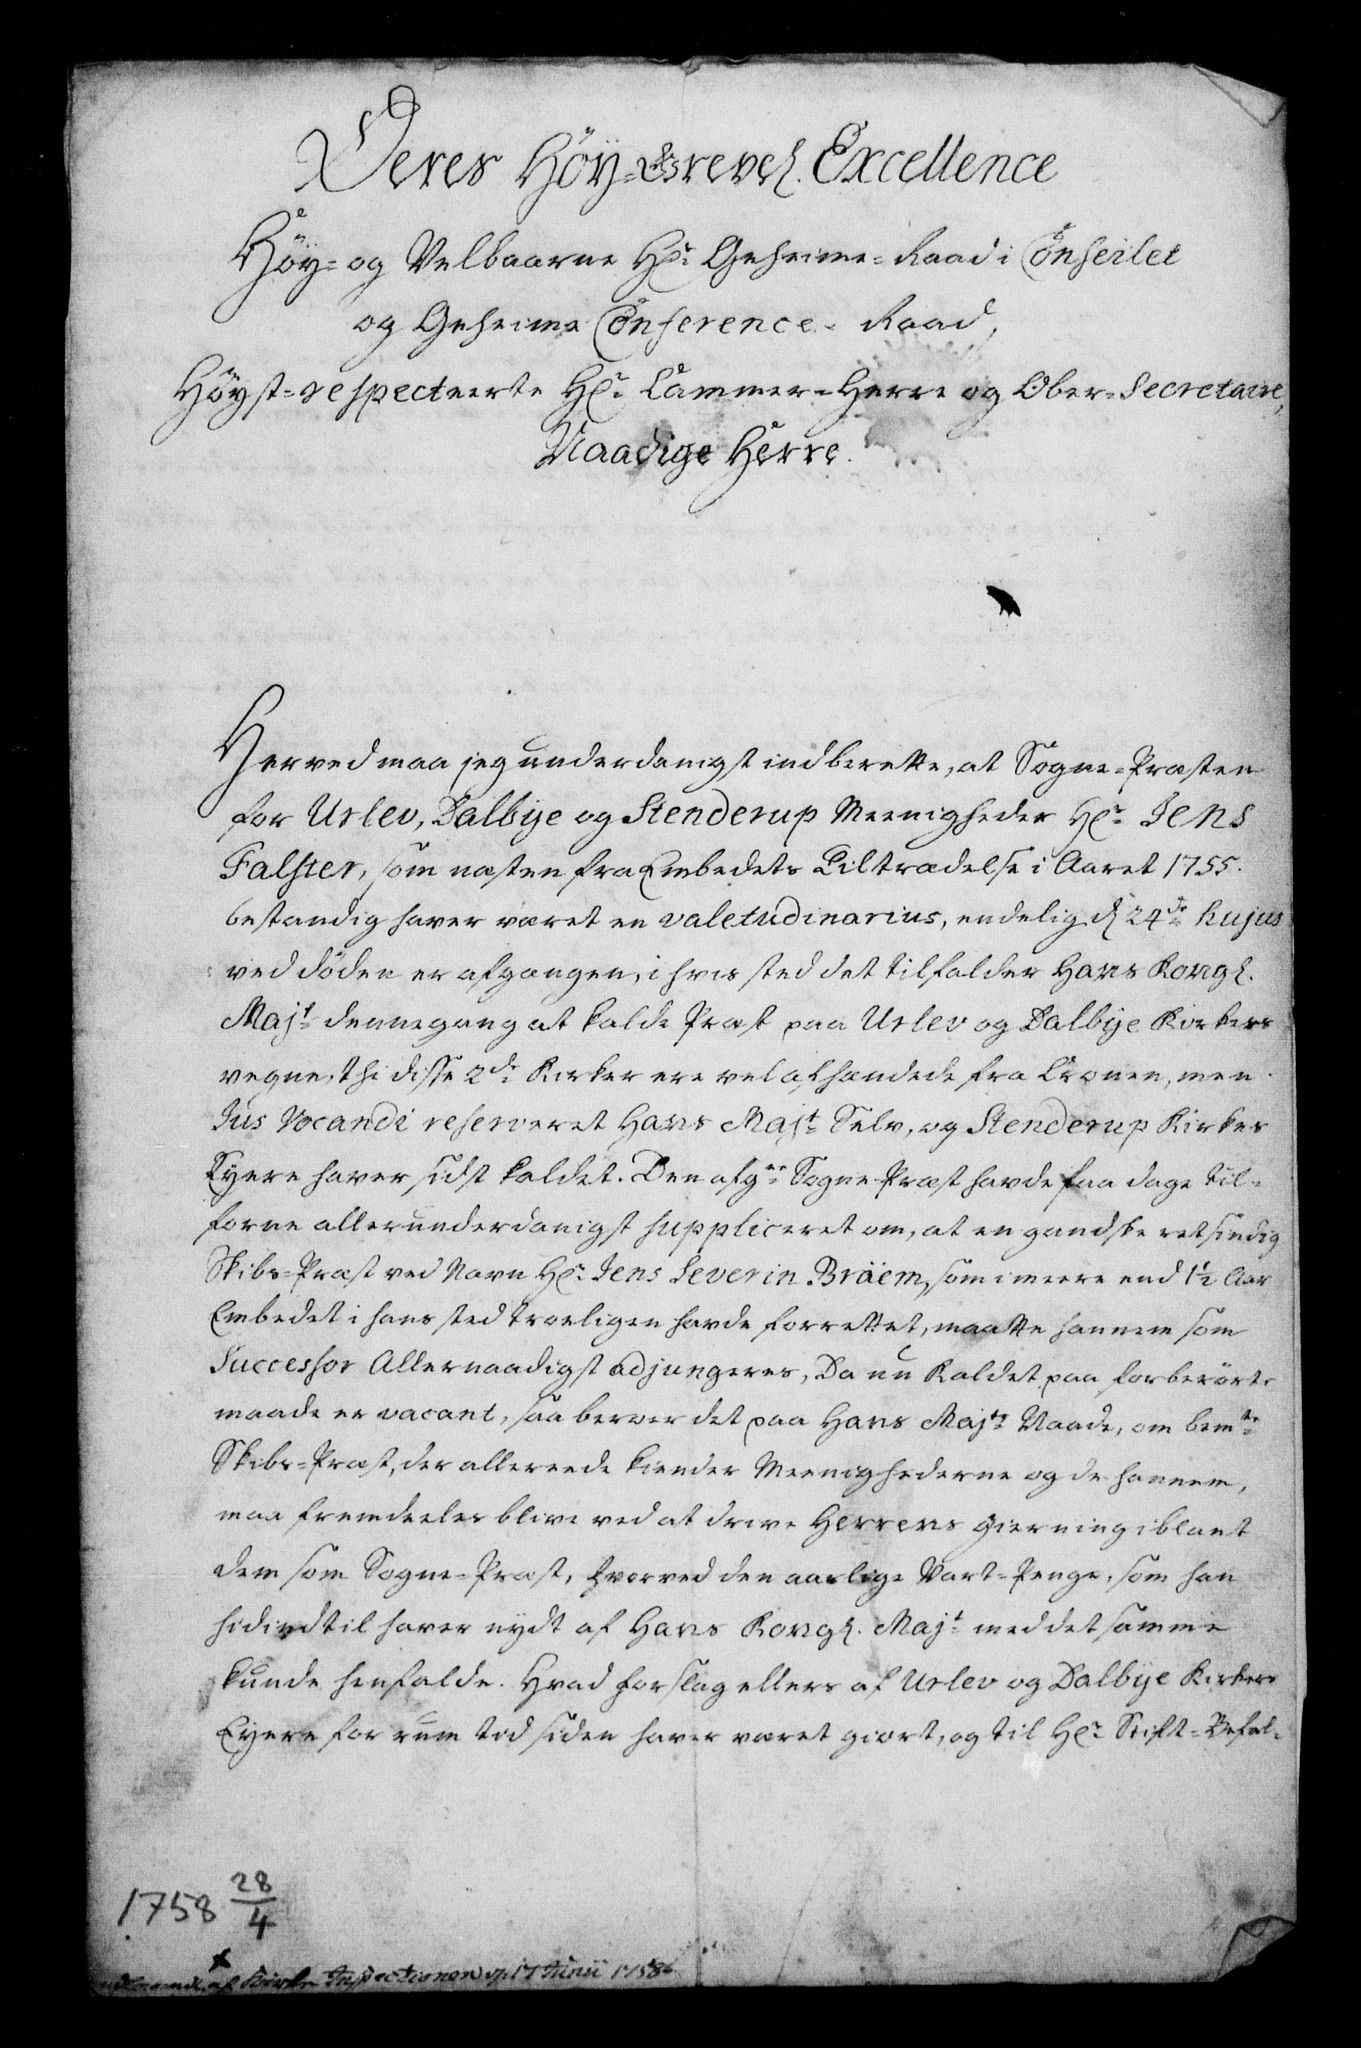 Deres Höy-Grevel. Excellence
Höy- og Velbaarne Hr. Geheime-Raad i Conseilet
og Geheime Conference-Raad,
Höyst-respecteerte Hr. Cammer-Herre og Ober-Secretaire,
Naadige Herre.
Herved maa jeg underdanigst indberette, at Sogne-Præsten
for Urlev, Dalbye og Stenderup Meenigheder Hr. Jens
Falster, som næsten fra Embedets Tiltrædelse i Aaret 1755.
bestandig haver været en valetudinarius, endelig d. 24de hujus
ved döden er afgangen, i hvis sted det tilfalder Hans Kongl.
Majt. dennegang at kalde Præst paa Urlev og Dalbye Kirkers
vegne, thi disse 2de Kirker ere vel afhændede fra Cronen, men
Jus Vocandi reserveret Hans Majt. Selv, og Stenderup Kirkes
Eyere haver sidst kaldet. Den afgne. Sogne-Præst havde faa dage til-
forne allerunderdanigst suppliceret om, at en gandske retsindig
Skibs-Præst ved Navn Hr. Jens Severin Bräem, som i meere end 1½ Aar
Embedet i hans sted troeligen havde forrettet, maatte hannem som
Successor Allernaadigst adjungeres, Da nu Kaldet paa forberörte
maade er vacant, saa beroer det paa Hans Majts. Naade, om bemte.
Skibs-Præst, der allereede kiender Meenighederne og de hannem,
maa fremdeeles blive ved at drive Herrens gierning iblant
dem som Sogne-Præst, hvorved den aarlige Vart-Penge, som han
hidindtil haver nydt af Hans Kongl. Majt. med det samme
kunde henfalde. Hvad forslag ellers af Urlev og Dalbye Kirkers
Eyere for rum tid siden haver været giort, og til Hr. Stift-Befal-
1758 28/4
af Kirke Inspectionen 17 Junii 1758